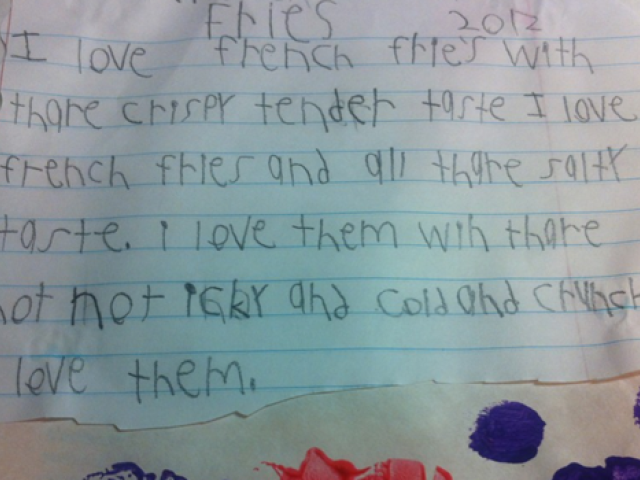 Fries 2012
I love french fries with
thare crispy tender taste I love
french fries and all thare salty
taste. i love them wih thare
hot not icky and cold and crunch
love them.